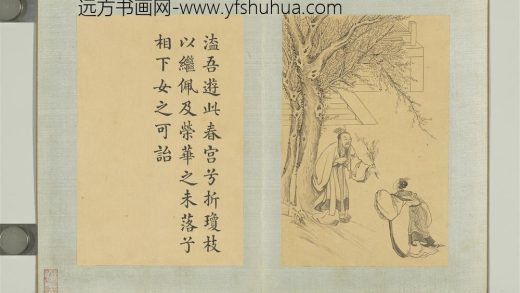 远方书画网-www.yfshuhua.com
溘吾遊此春宮兮折瓊枝
以繼佩及榮華之未落兮
相下女之可詒